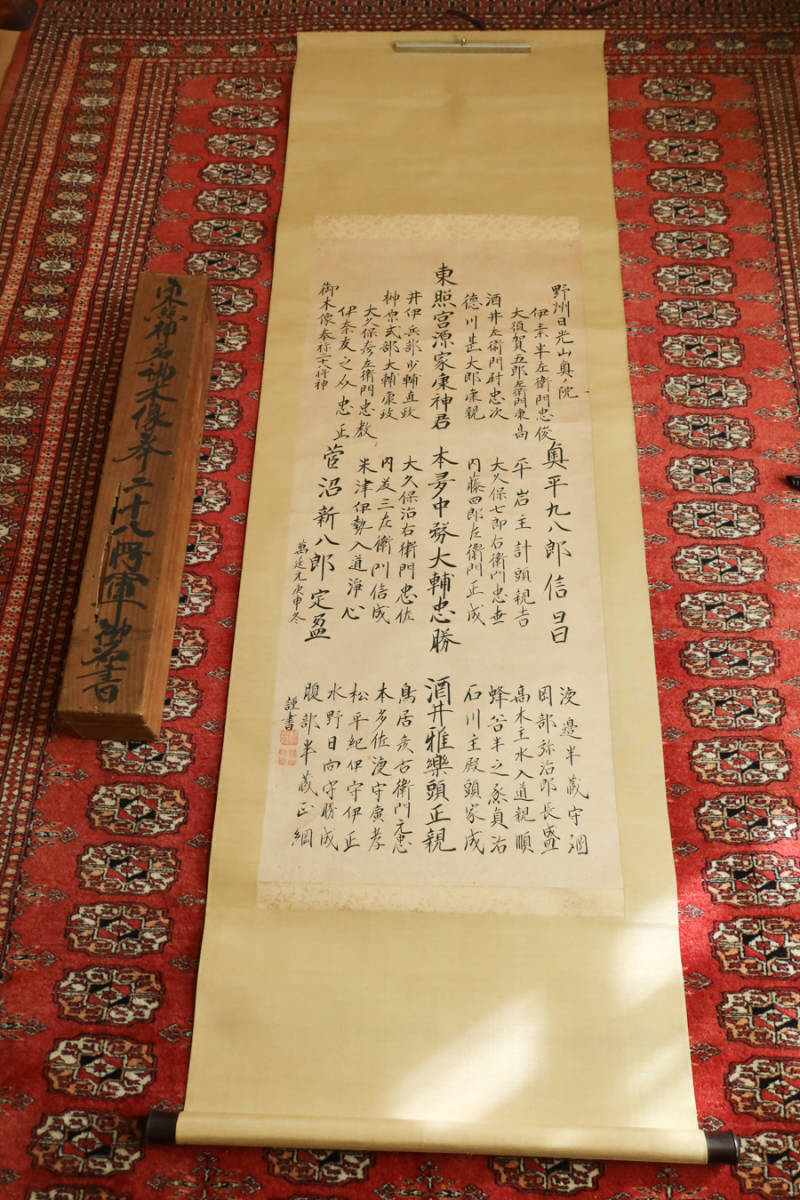 野州日光山奥ノ院
伊奈半左衛門忠俊
大須賀五郎左衛門康高
酒井左衛門尉忠次
徳川甚太郎康親
東照宮源家康神君
井伊兵部少輔直政
榊原式部大輔康政
大久保彦左衛門忠教
伊奈友之丞忠正
御木像奉称二十八将神
奥平九八郎信昌
平岩主計頭親吉
大久保七郎右衛門忠世
内藤四郎左衛門正成
本多中務大輔忠勝
大久保治右衛門忠佐
内藤三左衛門信成
米津伊勢入道浄心
菅沼新八郎定盈
萬延元庚申冬
渡邉半蔵守綱
岡部弥治郎長盛
高木主水入道親順
蜂谷半之丞貞治
石川主殿頭家成
酒井雅樂頭正親
鳥居彦右衛門元忠
本多佐渡守廣孝
松平紀伊守伊正
水野日向守勝成
服部半蔵正綱
謹書
東照神君御木像并二十八将軍御名書